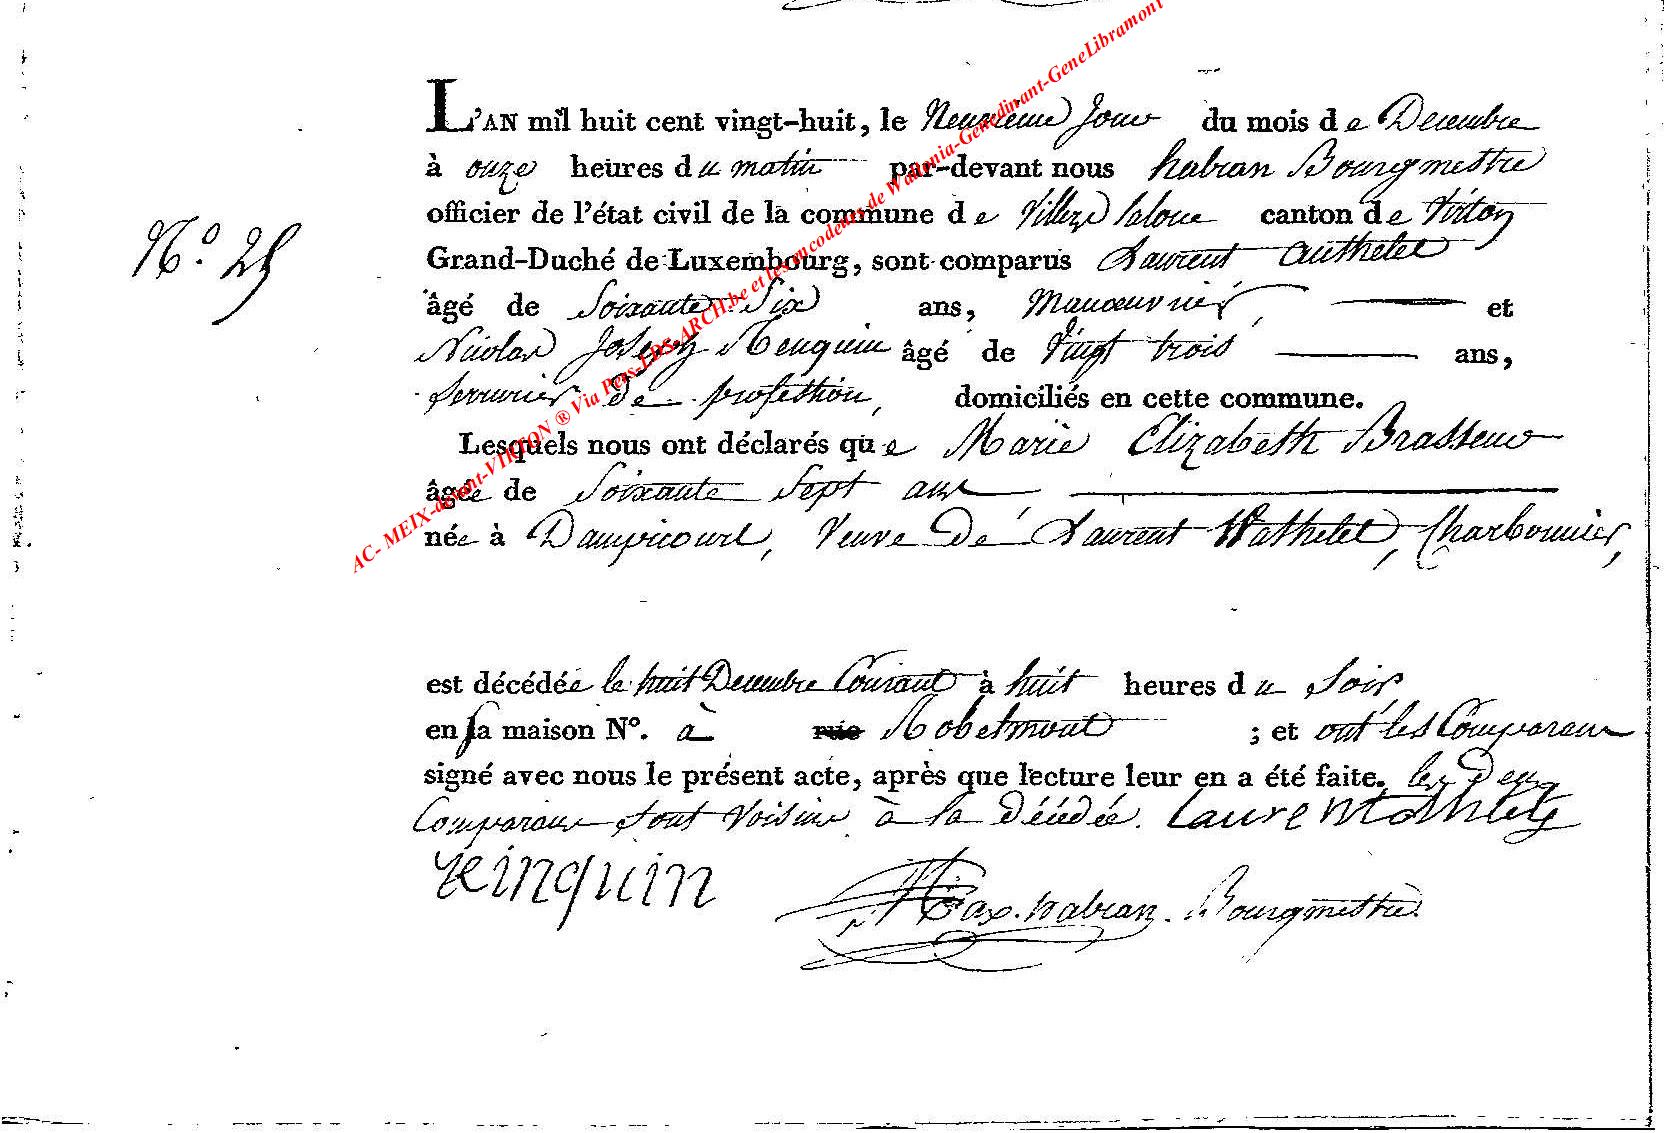 L'AN mil huit cent vingt-huit, le Neuvieme Jour du mois de Decembre
à onze heures du matin par-devant nous habran Bourgmestre
officier de l'état civil de la commune de Villers laloue canton de Virton
Grand-Duché de Luxembourg, sont comparus Laurent Authelet
N.° 25
âgé de Soixante Six ans, Manœuvrier, et
Nicolas Joseph âgé de Vingt trois ans,
serrurier de profession, domiciliés en cette commune.
Lesquels nous ont déclarés que Marie Elizabeth Brasseur
âgée de Soixante Sept ans
née à Dampicourt, Veuve de Laurent Wathelet, Charbonnier,
est décédée le huit Decembre Courant à huit heures du Soir
en sa maison N°. à rue Robelmont ; et ont les Comparans
signé avec nous le présent acte, après que lecture leur en a été faite. les deux
Comparans sont Voisins à la décédée.
habran. Bourgmestre
AC- MEIX-devant-VIRTON ® Via Pers-FDS-ARCH.be et les encodeurs de Wallonia-Genedinant-GeneLibramont